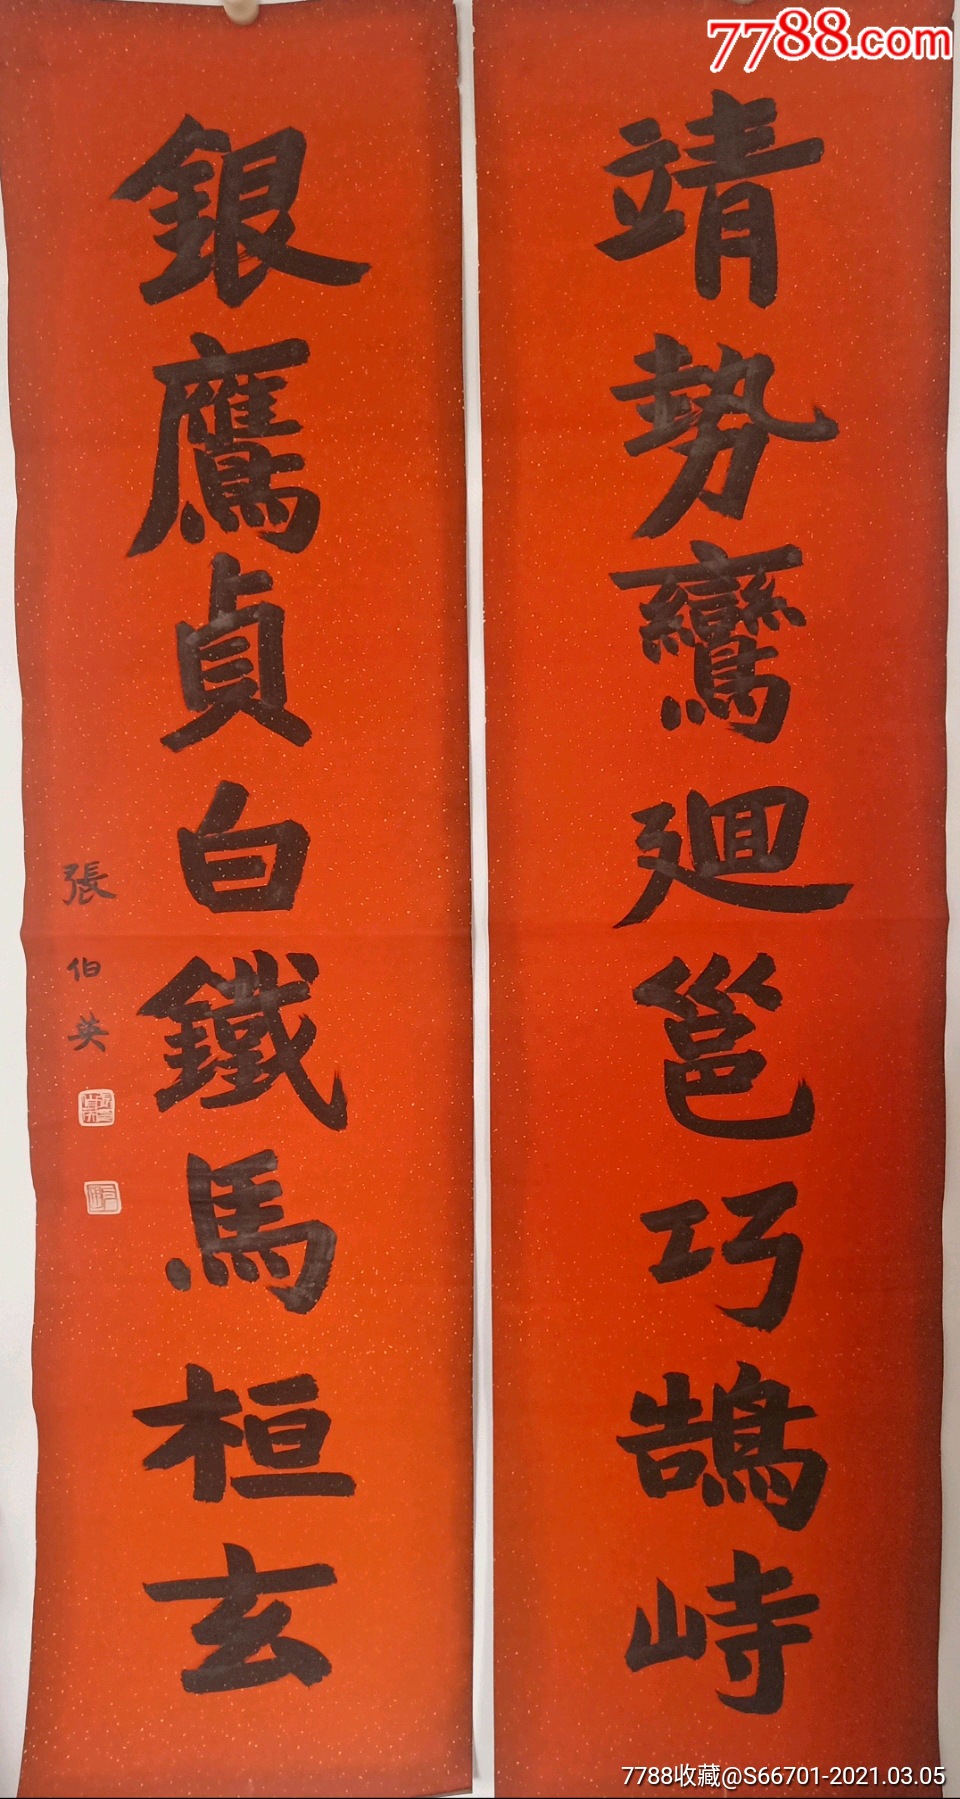 7788.com
靖勢鸞廻邕巧鵠峙
銀鷹貞白鐵馬桓玄
張伯英
7788收藏@S66701-2021.03.05